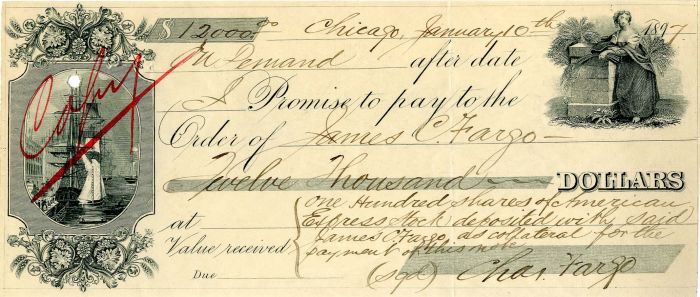 $ 12000.00 Chicago, January 10th 1897
On Demand after date
I Promise to pay to the
Order of James C. Fargo
Twelve Thousand DOLLARS
at
Value received
Due
One Hundred shares of American
Express Stock deposited with said
James C. Fargo as collateral for the
payment of this note
(sgd) Chas. Fargo
Copy